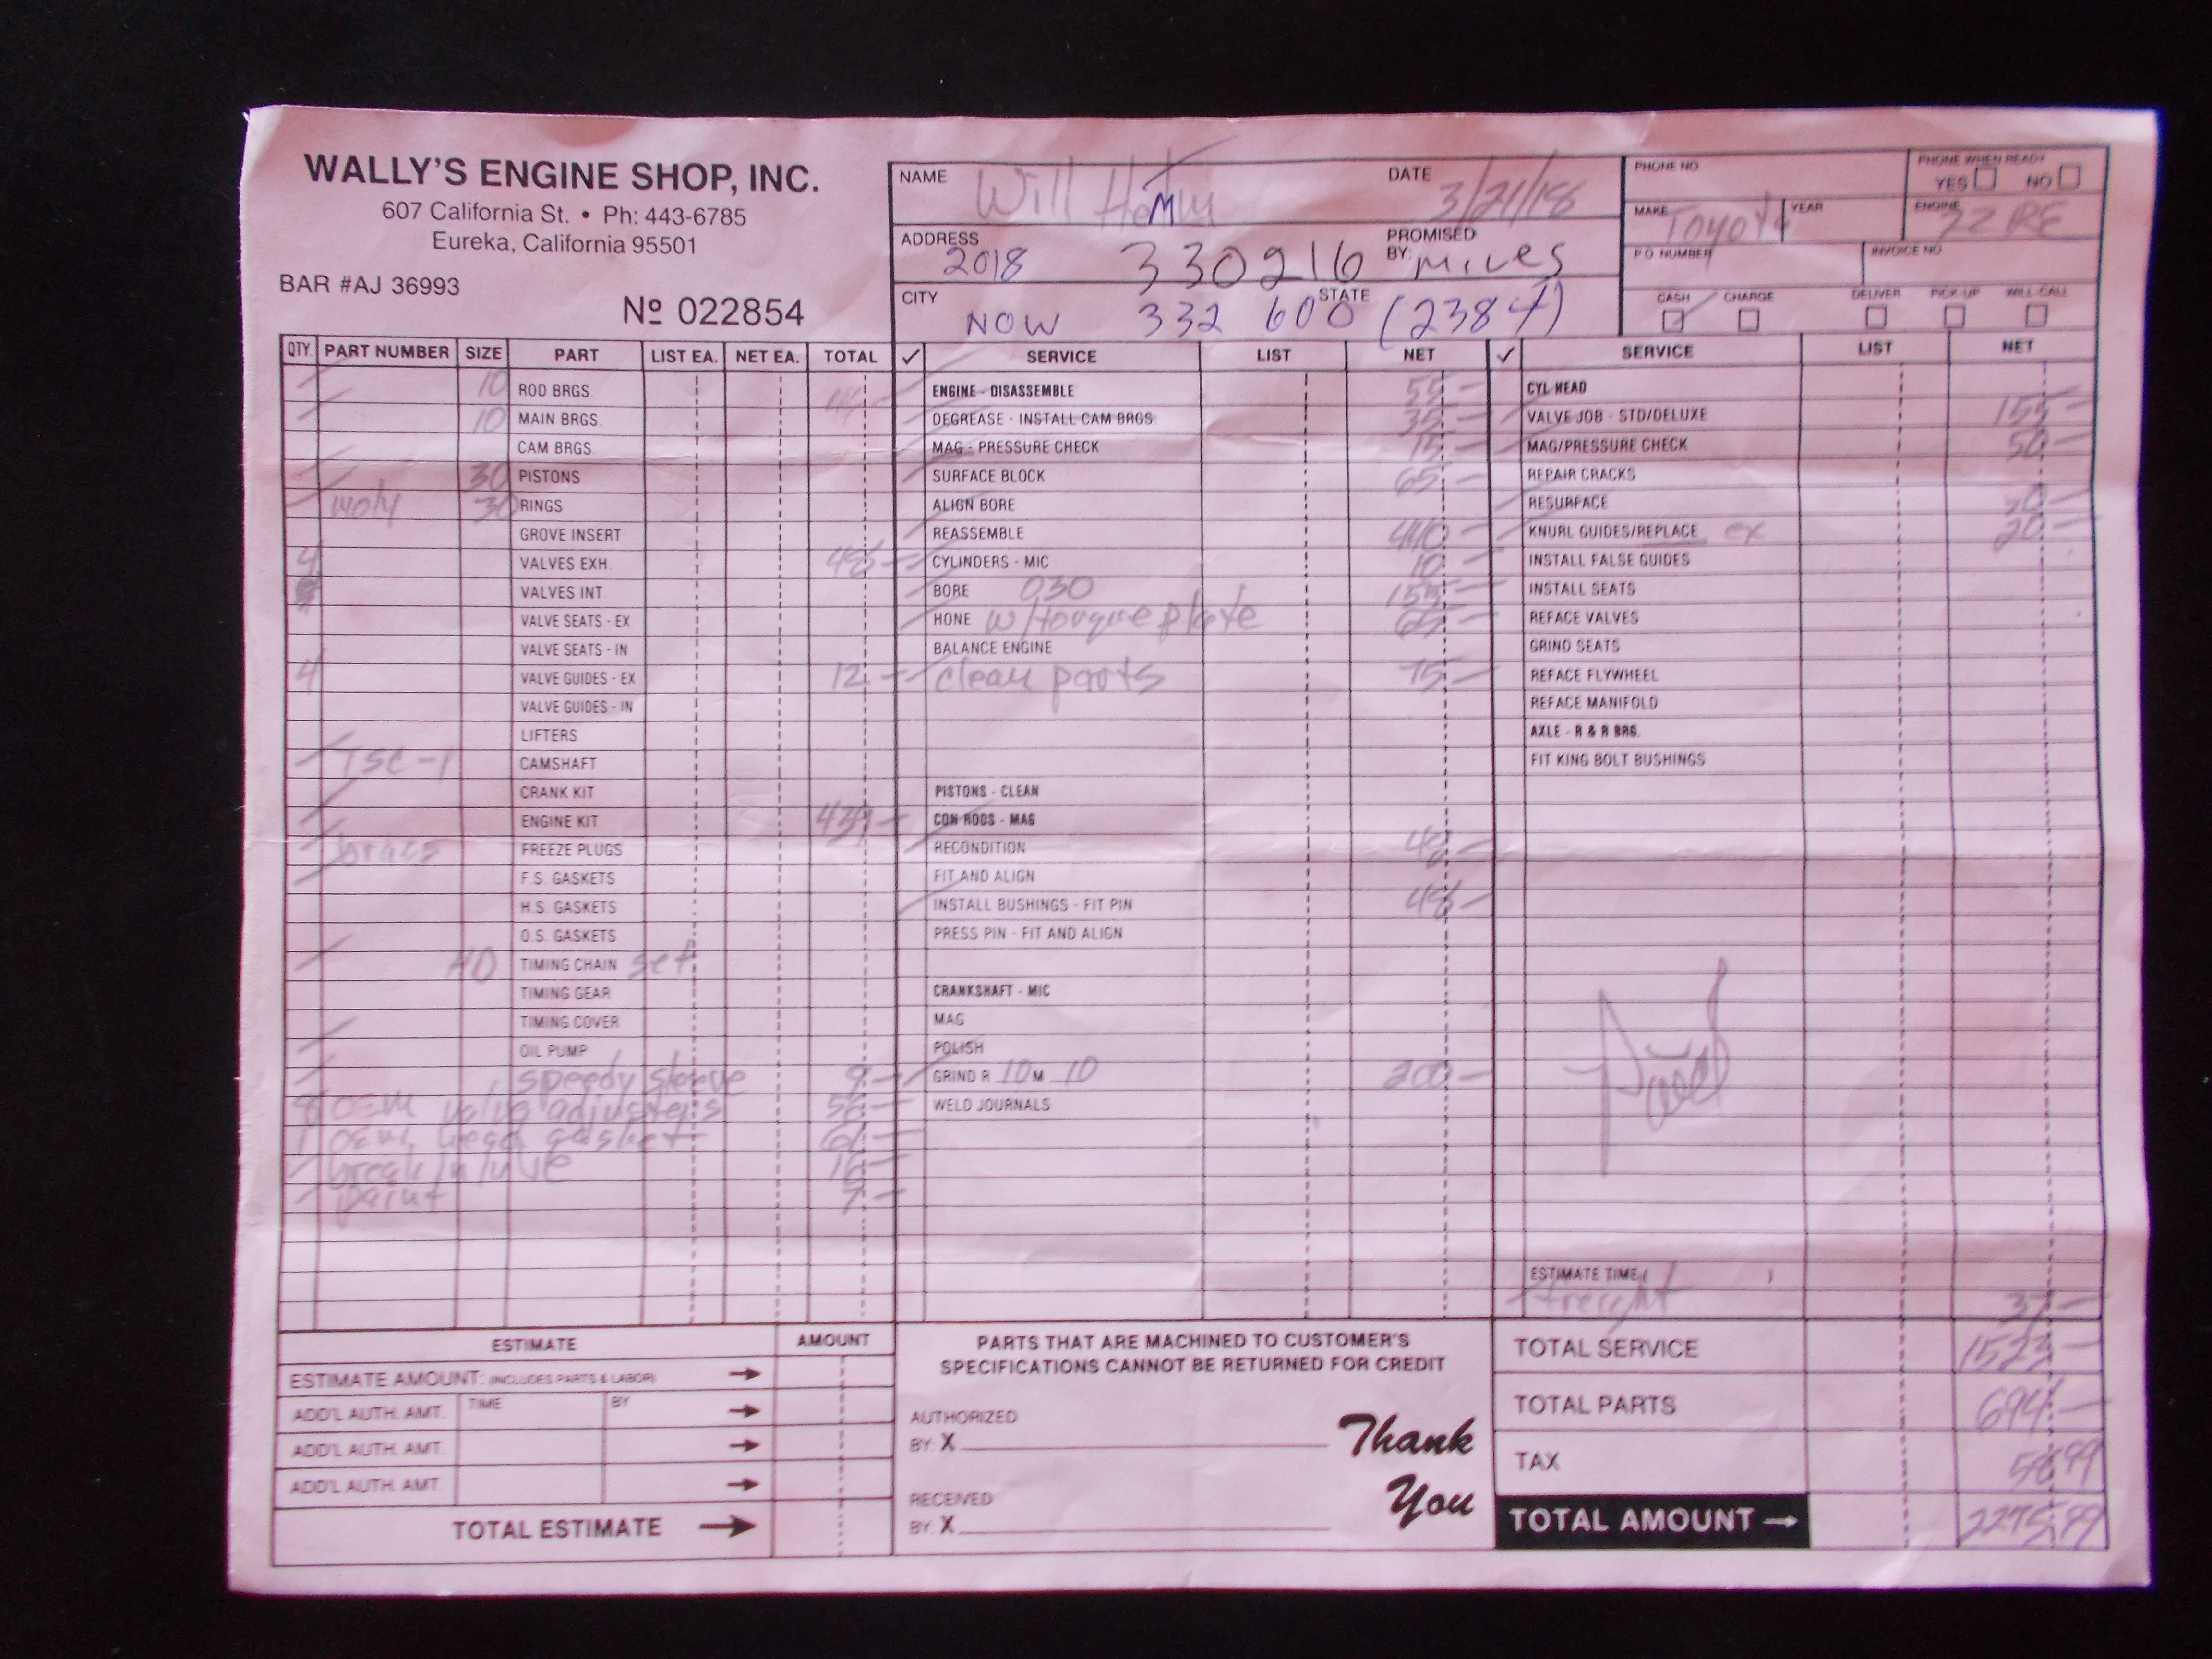 WALLY'S ENGINE SHOP, INC.
607 California St. • Ph: 443-6785
Eureka, California 95501
BAR #AJ 36993
Nº 022854
NAME Will
DATE 3/21/18
ADDRESS 2018 330216
PROMISED BY: miles
CITY NOW 332 600 (2384)
STATE
PHONE NO.
PHONE WHEN READY
YES NO
MAKE Toyota
YEAR
ENGINE 22 RE
P.O. NUMBER
INVOICE NO.
CASH CHARGE DELIVER PICK-UP WILL-CALL
QTY. PART NUMBER SIZE PART LIST EA. NET EA. TOTAL
10 ROD BRGS.
10 MAIN BRGS.
CAM BRGS.
30 PISTONS
moly 30 RINGS
GROVE INSERT
4 VALVES EXH. 48 —
VALVES INT.
VALVE SEATS - EX
VALVE SEATS - IN
4 VALVE GUIDES - EX 12 —
VALVE GUIDES - IN
LIFTERS
TSC-1 CAMSHAFT
CRANK KIT
ENGINE KIT 439 —
brass FREEZE PLUGS
F.S. GASKETS
H.S. GASKETS
O.S. GASKETS
TIMING CHAIN set
TIMING GEAR
TIMING COVER
OIL PUMP
speedy sleeve 9 —
8 OEM valve adjusters
1 OEM head gasket
break in lube 16 —
paint 7 —
✓ SERVICE LIST NET
ENGINE - DISASSEMBLE 55 —
DEGREASE - INSTALL CAM BRGS. 35 —
MAG - PRESSURE CHECK 15 —
SURFACE BLOCK 65 —
ALIGN BORE
REASSEMBLE 440 —
CYLINDERS - MIC 10 —
BORE 030 155 —
HONE w/torque plate 65 —
BALANCE ENGINE
clean parts 75 —
PISTONS - CLEAN
CON RODS - MAG
RECONDITION 48 —
FIT AND ALIGN
INSTALL BUSHINGS - FIT PIN 48 —
PRESS PIN - FIT AND ALIGN
CRANKSHAFT - MIC
MAG
POLISH
GRIND R 10 M 10 200 —
WELD JOURNALS
✓ SERVICE LIST NET
CYL HEAD
VALVE JOB - STD/DELUXE 155 —
MAG/PRESSURE CHECK 50 —
REPAIR CRACKS
RESURFACE
KNURL GUIDES/REPLACE ex 20 —
INSTALL FALSE GUIDES
INSTALL SEATS
REFACE VALVES
GRIND SEATS
REFACE FLYWHEEL
REFACE MANIFOLD
AXLE - R & R BRG.
FIT KING BOLT BUSHINGS
Paid
ESTIMATE TIME ( )
freight 37 —
ESTIMATE AMOUNT
ESTIMATE AMOUNT: (INCLUDES PARTS & LABOR)
ADD'L AUTH. AMT. TIME BY
ADD'L AUTH. AMT.
ADD'L AUTH. AMT.
TOTAL ESTIMATE
PARTS THAT ARE MACHINED TO CUSTOMER'S
SPECIFICATIONS CANNOT BE RETURNED FOR CREDIT
AUTHORIZED
BY: X
RECEIVED
BY: X
Thank
You
TOTAL SERVICE 1523 —
TOTAL PARTS 694 —
TAX 58 99
TOTAL AMOUNT → 2275 99